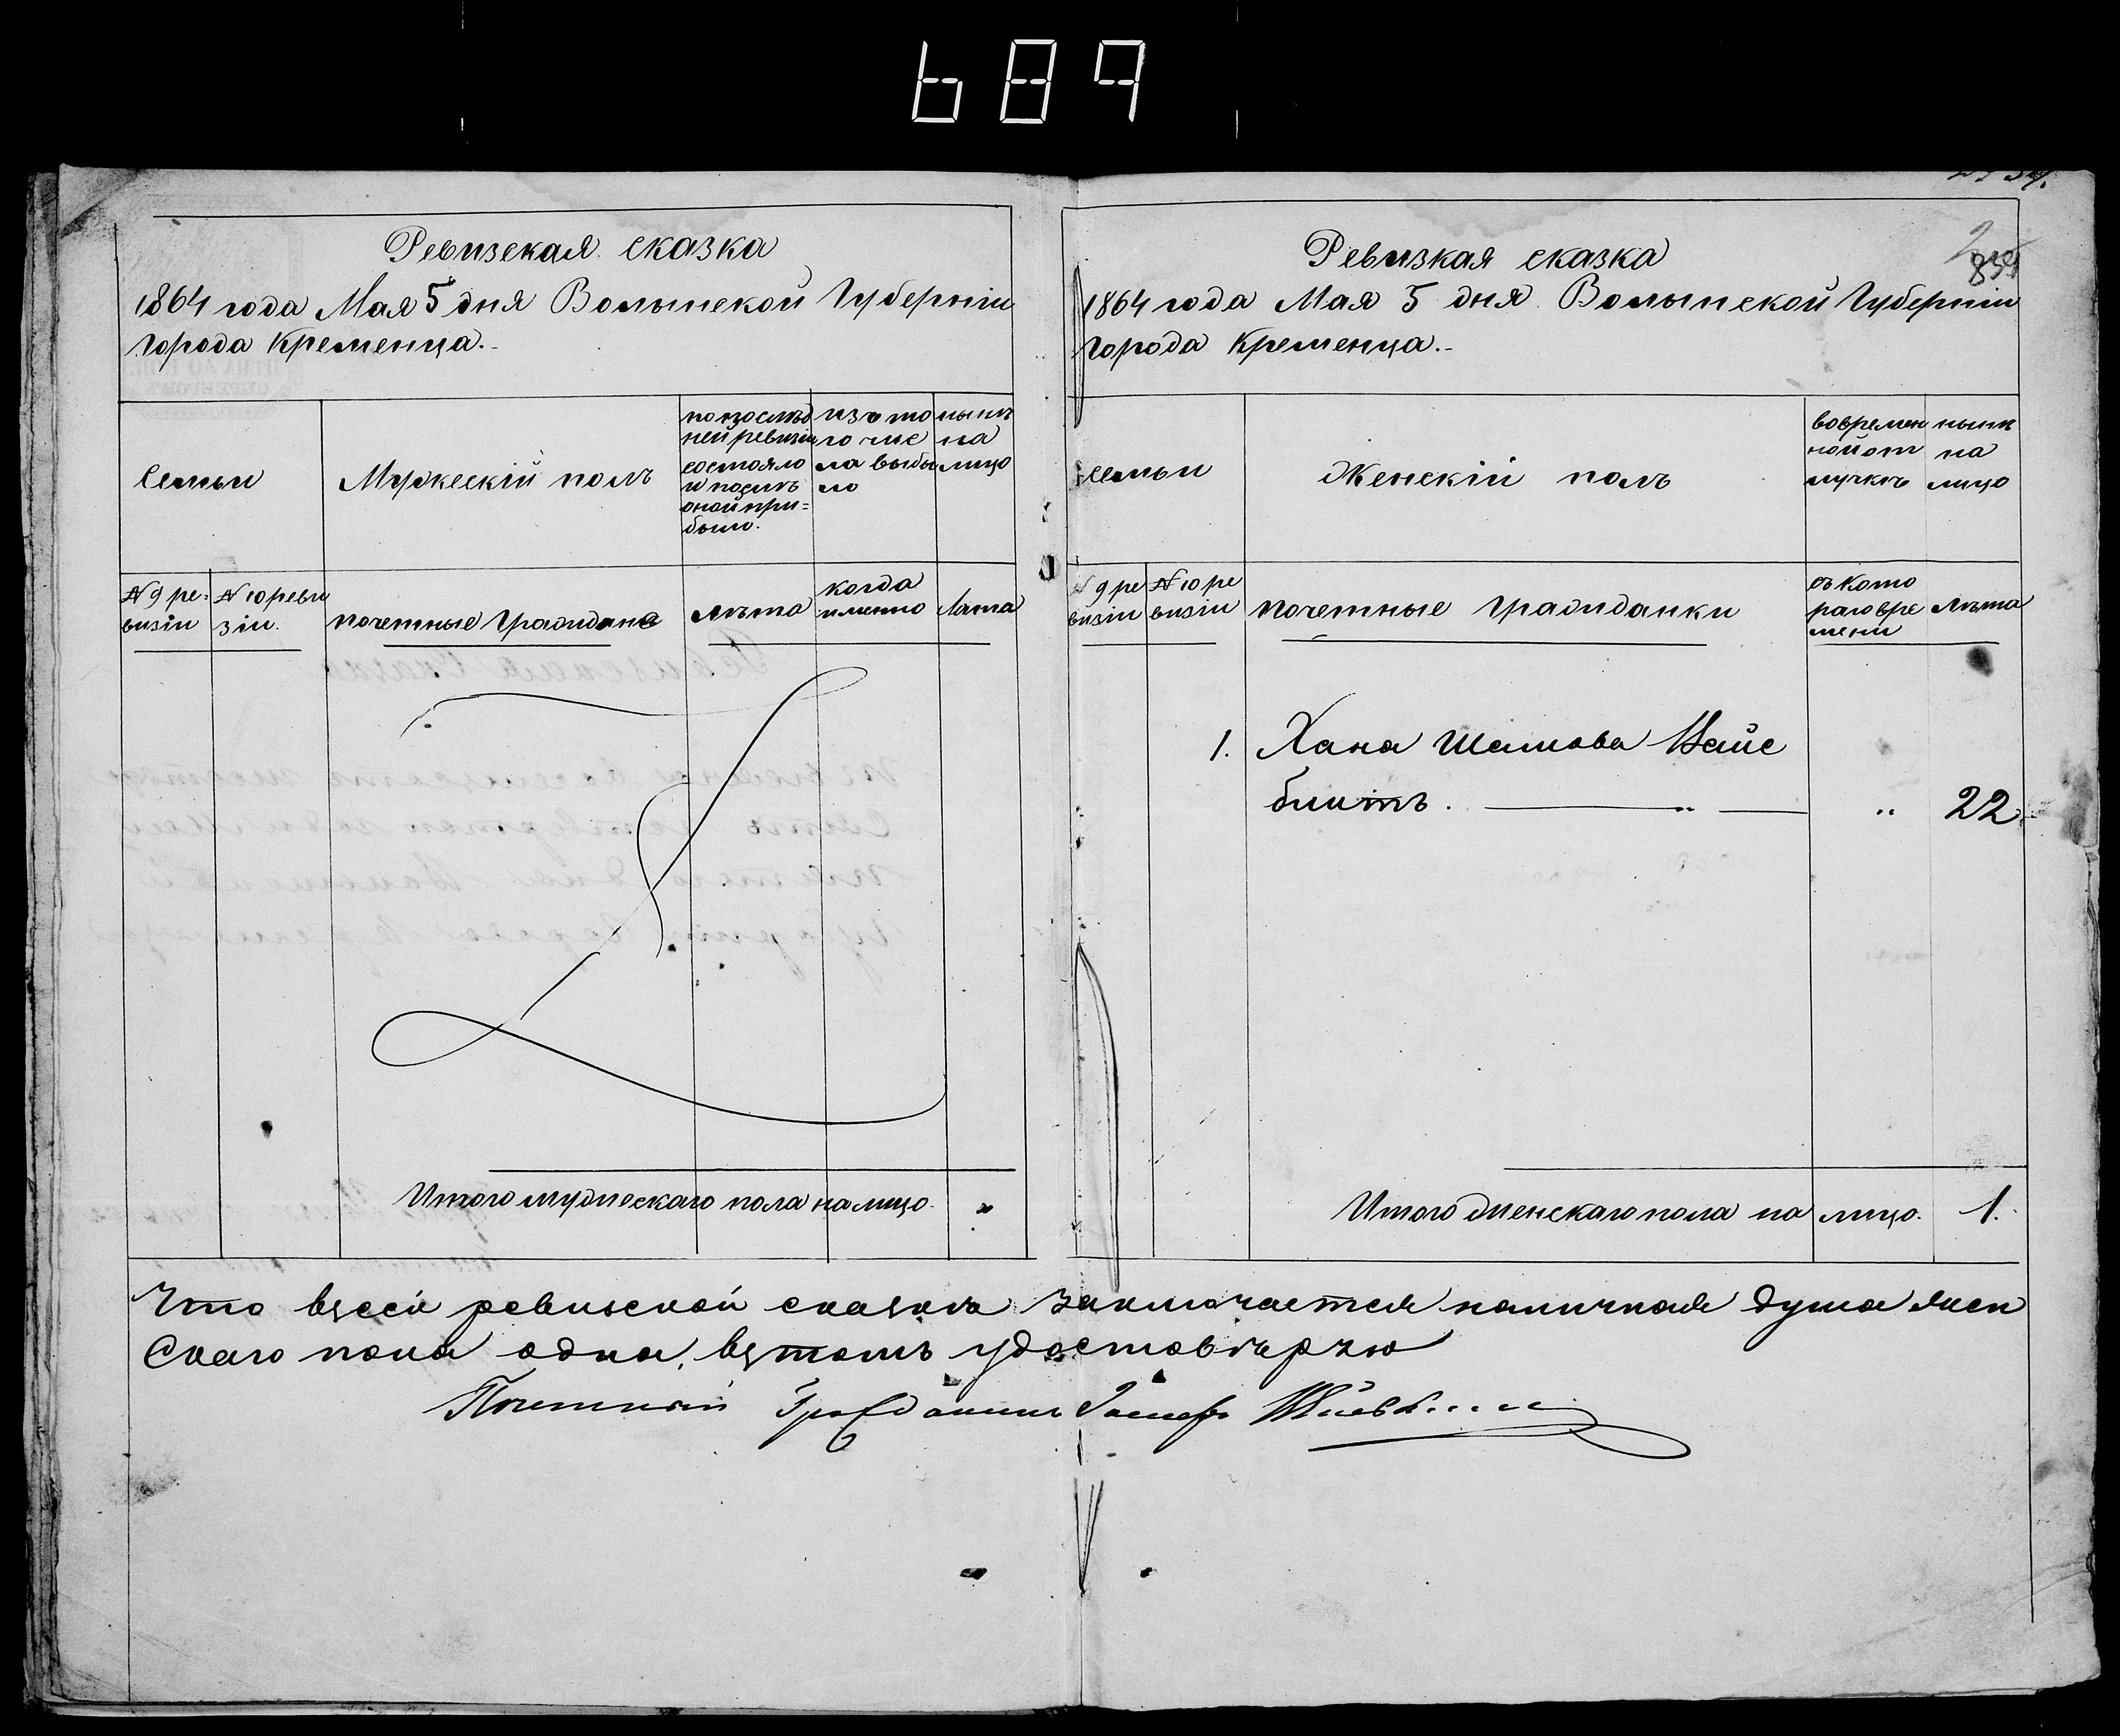 689
Ревизская сказка
1864 года Мая 5 дня Волынской Губерніи
города Кременца.
Семьи
Мужескій полъ
по послѣд
ней ревизіи
состояло
и послѣ
оной при=
было.
изъ то
го чис
ла выбы
ло
нынѣ
на
лицо
№ 9 ре-
визіи
№ 10 реви
зіи.
почетные Граждане
лѣта
когда
именно
Лѣта
Итого мужескаго пола на лицо. "
Ревизкая сказка
835
1864 года Мая 5 дня Волынской Губерніи
города Кременца.
семьи
Женскій полъ
вовремен
ной от
лучкѣ
нынѣ
на
лицо
№ 9 ре
визіи
№ 10 ре
визіи
почетные Гражданки
съ кото
раго вре
мени
лѣта
1. Хана Шамова Вайс
блитъ. " " 22
Итого женскаго пола на лицо. 1.
Что всеей ревизской сказкѣ заключается наличная душа жен
Скаго пола одна, втомъ удостовѣрѧю
Почетный Гражданинъ